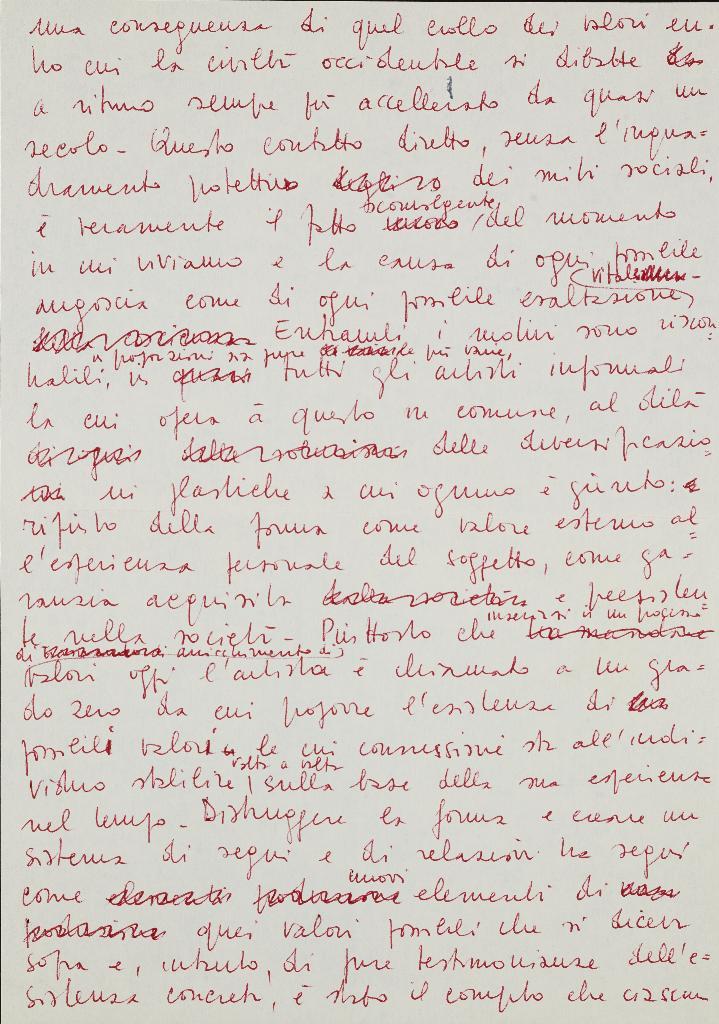 una conseguenza di quel crollo dei valori en-
tro cui la civiltà occidentale si dibatte
a ritmo sempre più accellerato da quasi un
secolo - Questo contatto diretto, senza l'inqua=
dramento protettivo dei miti sociali,
è veramente il fatto sconvolgente del momento
in cui viviamo e la causa di ogni possibile
angoscia come di ogni possibile esaltazione vitale
Entrambi i motivi sono riscon
trabili, in proporzioni sia pure più varie, tutti gli artisti informali
la cui opera à questo in comune, al dilà
delle diversificazio=
ni plastiche a cui ognuno è giunto:
rifiuto della forma come valore esterno al=
l'esperienza personale del soggetto, come ga=
ranzia acquisita e preesisten
te nella società - Piuttosto che inserirsi in un processo
di arricchimento di
valori oggi l'artista è chiamato a un gra=
do zero da cui proporre l'esistenza di
possibili valori le cui connessioni sta all'indi=
viduo stabilire volta a volta sulla base della sua esperienza
nel tempo - Distruggere la forma e creare un
sistema di segni e di relazioni tra segni
come nuovi elementi di
quei valori possibili che si diceva
sopra e, intanto, di pure testimonianze dell'e=
sistenza concreta, è stato il compito che ciascun